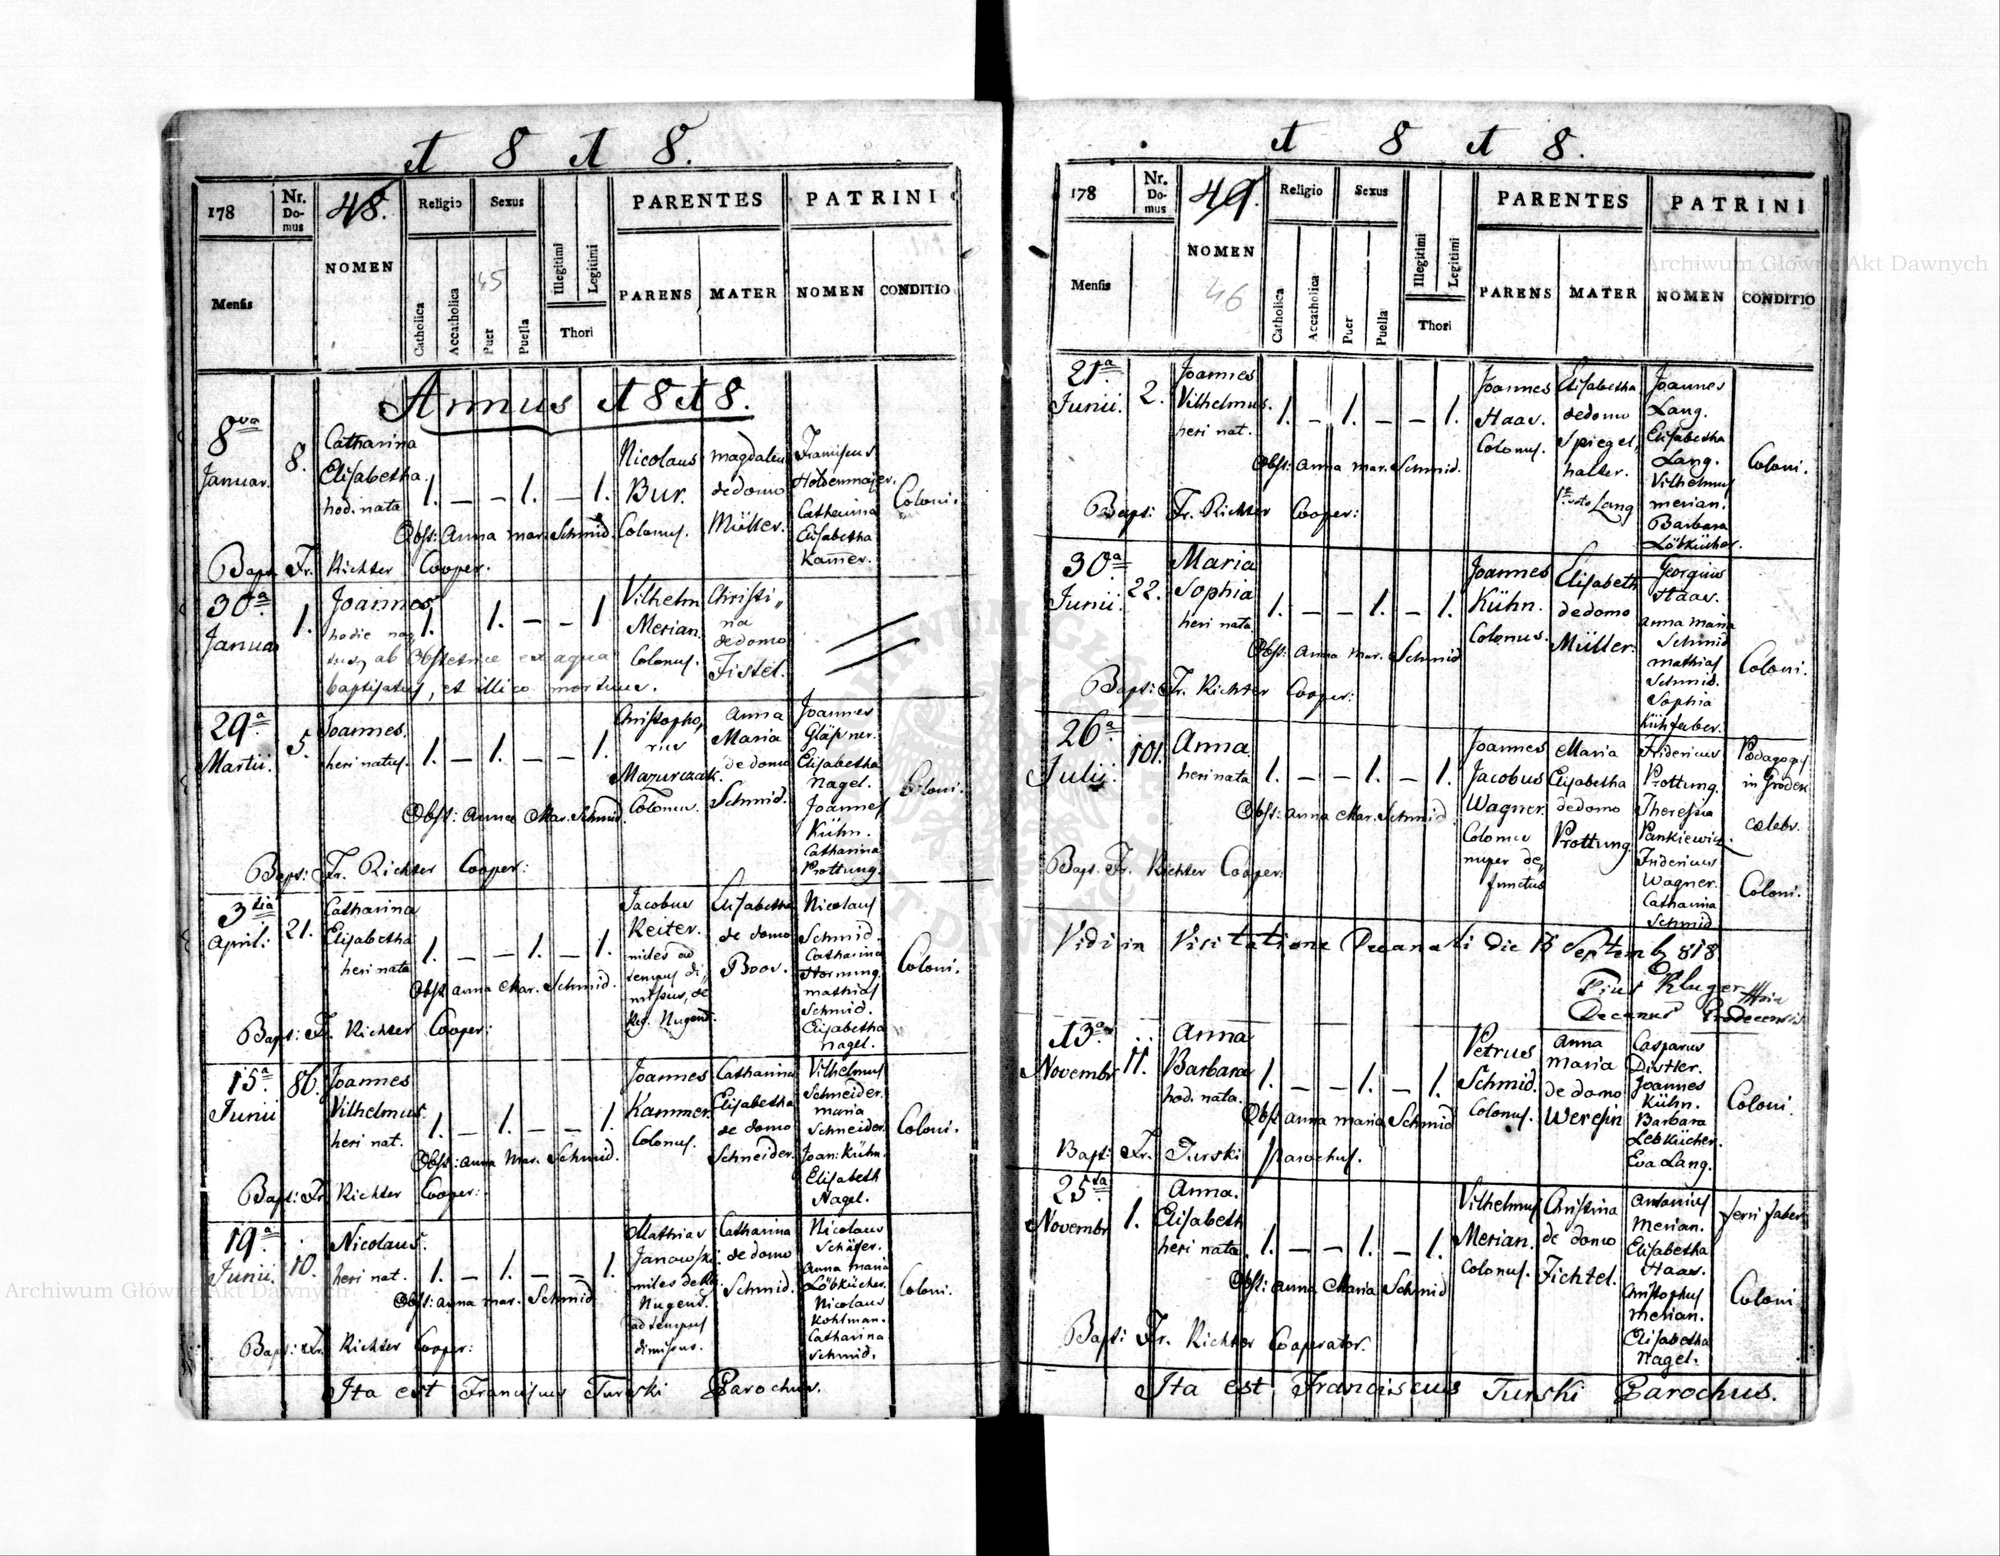 1 8 1 8.
178
Nr. Domus
48.
Religio
Sexus
PARENTES
PATRINI
Mensis
NOMEN
45
Catholica
Accatholica
Puer
Puella
Illegitimi
Legitimi
Thori
PARENS
MATER
NOMEN
CONDITIO
Annus 1818.
8va Januar.
8.
Catharina
Elisabetha
hod. nata
1. — — 1. — 1.
Obst: Anna Mar. Schmid.
Nicolaus
Bur.
Colonus.
Magdalena
de domo
Müller.
Franciscus
Holdenmajer.
Catharina
Elisabetha
Kam̄er.
Coloni.
Bapt. Fr. Richter Cooper.
30a Januar
1.
Joannes
hodie na
tus, ab Obstetrice ex aqua
baptisatus, et illico mortuus.
1. 1. — — 1
Vilhelm
Merian.
Colonus.
Christi„
na
de domo
Fistel.
29a Martii.
5.
Joannes.
heri natus.
1. — 1. — — 1.
Obst: Anna Mar. Schmid.
Christopho„
rus
Mazurczak.
Colonus.
Anna
Maria
de domo
Schmid.
Joannes
Gläsner.
Elisabetha
Nagel.
Joannes
Kühn.
Catharina
Prottung.
Coloni.
Bapt: Fr. Richter Cooper:
3tia April:
21.
Catharina
Elisabetha
heri nata
1. — — 1. — 1.
Obst: Anna Mar. Schmid.
Jacobus
Reiter.
miles ad
tempus di„
missus, de
Reg. Nugend.
Elisabetha
de domo
Boos.
Nicolaus
Schmid.
Catharina
Hornung.
Mathias
Schmid.
Elisabetha
Nagel.
Coloni.
Bapt: Fr. Richter Cooper:
15a Junii
86.
Joannes
Vilhelmus.
heri nat.
1. — 1. — — 1.
Obst: Anna Mar. Schmid.
Joannes
Kammer.
Colonus.
Catharina
Elisabetha
de domo
Schneider.
Vilhelmus
Schneider.
Maria
Schneider.
Joan: Kühn.
Elisabeth
Nagel.
Coloni.
Bapt: Fr. Richter Cooper:
19a Junii.
10.
Nicolaus.
heri nat.
1. — 1. — — 1.
Obst: Anna Mar. Schmid
Mathias
Janowski.
miles de Reg
Nugent.
ad tempus
dimissus.
Catharina
de domo
Schmid.
Nicolaus
Schäfer.
Anna Maria
Löbkücher.
Nicolaus
Kohlman.
Catharina
Schmid.
Coloni.
Bapt: Fr. Richter Cooper:
Ita est Franciscus Turski Parochus.
1 8 1 8.
178
Nr. Domus
49.
Religio
Sexus
PARENTES
PATRINI
Mensis
NOMEN
46
Catholica
Accatholica
Puer
Puella
Illegitimi
Legitimi
Thori
PARENS
MATER
NOMEN
CONDITIO
21a Junii.
2.
Joannes
Vilhelmus.
heri nat.
1. — 1. — — 1.
Obst: Anna Mar. Schmid.
Joannes
Haas.
Colonus.
Elisabetha
de domo
Spiegel„
halter.
1o voto Lang
Joannes
Lang.
Elisabetha
Lang.
Vilhelmus
Merian.
Barbara
Löbkücher.
Coloni.
Bapt: Fr. Richter Cooper:
30a Junii.
22.
Maria
Sophia
heri nata
1. — — 1. — 1.
Obst: Anna Mar. Schmid
Joannes
Kühn.
Colonus.
Elisabeth
de domo
Müller.
Georgius
Haas.
Anna Maria
Schmid
Mathias
Schmid.
Sophia
Kühfuber.
Coloni.
Bapt: Fr. Richter Cooper:
26a Julii
101.
Anna.
heri nata
1. — — 1. — 1.
Obst: Anna Mar. Schmid.
Joannes
Jacobus
Wagner.
Colonus
nuper de„
functus
Maria
Elisabetha
de domo
Prottung.
Fridericus
Prottung.
Theresia
Pankiewicz.
Fridericus
Wagner.
Catharina
Schmid
Pædagogus
in Grodek
celebr.
Coloni.
Bapt. Fr. Richter Cooper:
Vidi in Visitatione Decanali die 15 Septemb 818
Pius Kluger
Decanus Grodecensis
13a Novembr
11.
Anna
Barbara
hod. nata.
1. — — 1. — 1.
Obst: Anna Maria Schmid
Petrus
Schmid.
Colonus.
Anna
Maria
de domo
Weresin
Casparus
Distler.
Joannes
Kühn.
Barbara
Lebkücher.
Eva Lang.
Coloni.
Bapt: Fr. Turski Parochus.
25ta Novembr
1.
Anna.
Elisabeth
heri nata.
1. — — 1. — 1.
Obst: Anna Maria Schmid
Vilhelmus
Merian.
Colonus.
Christina
de domo
Fichtel.
Antonius
Merian.
Elisabetha
Haas.
Christophus
Merian.
Elisabetha
Nagel.
ferri faber
Coloni
Bapt: Fr. Richter Cooperator.
Ita est Franciscus Turski Parochus.
Archiwum Główne Akt Dawnych
Archiwum Główne Akt Dawnych